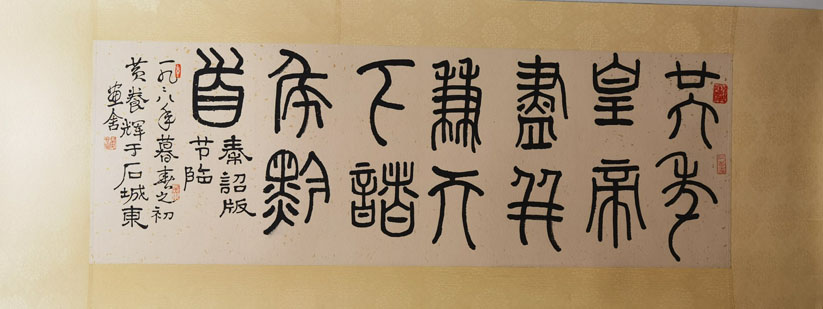 廿六年
皇帝
盡并
兼天
下諸
矦黔
首
秦詔版
节临
一九八八年暮春之初
黄養辉于石城東
畫舍